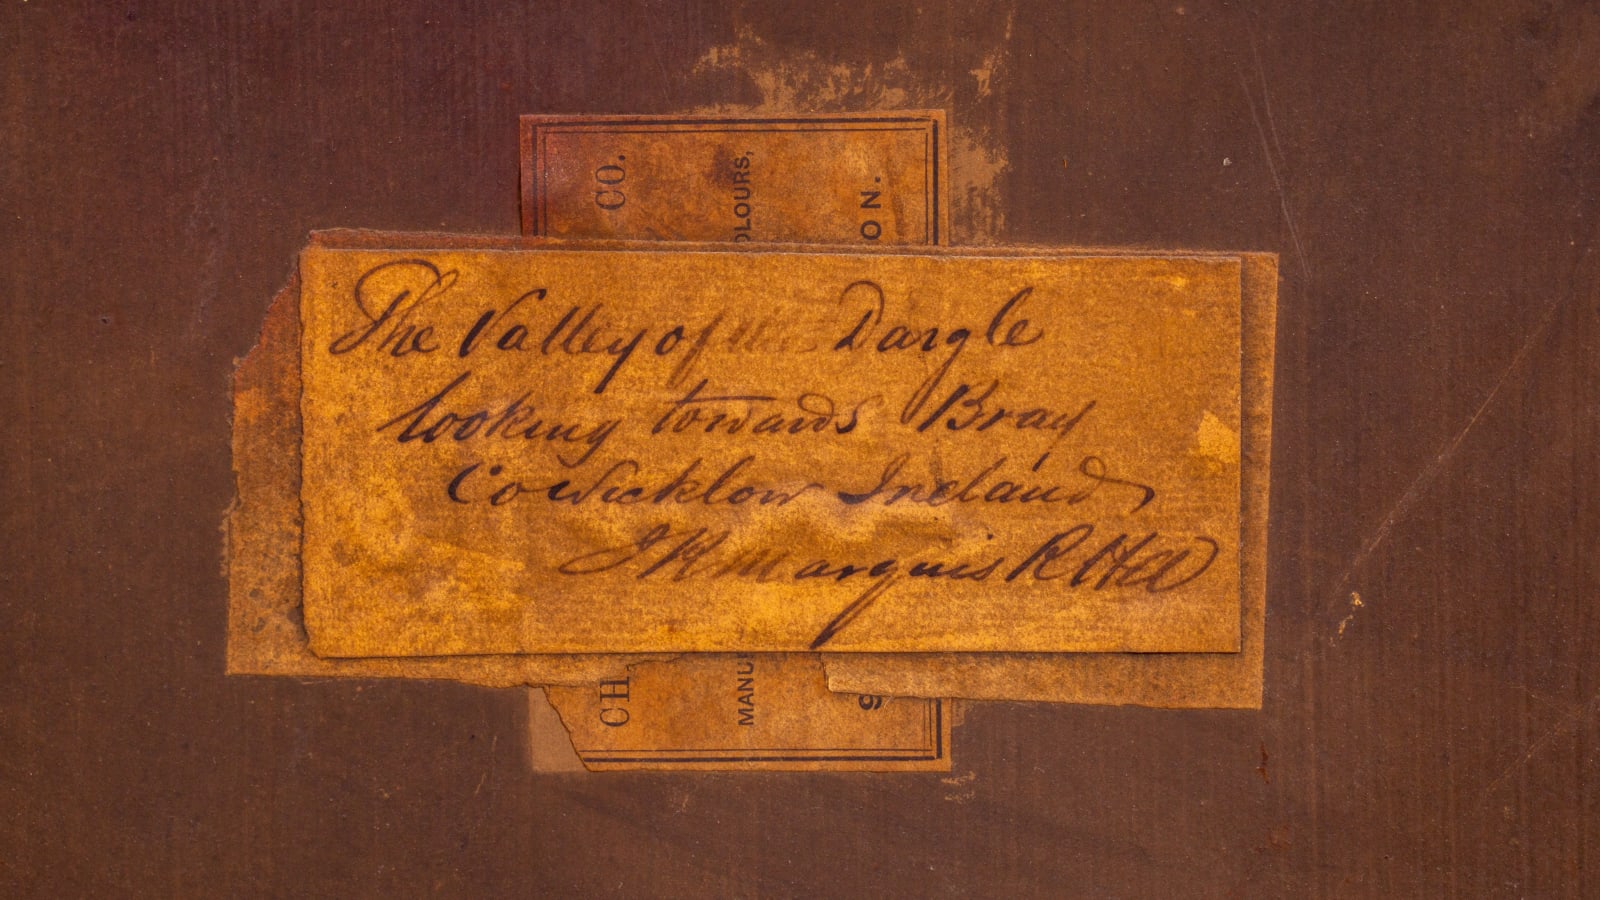 The Valley of the Dargle
looking towards Bray
Co Wicklow Ireland
J R Marquis RHA
CO.
OLOURS,
ON.
CH
MANU
9